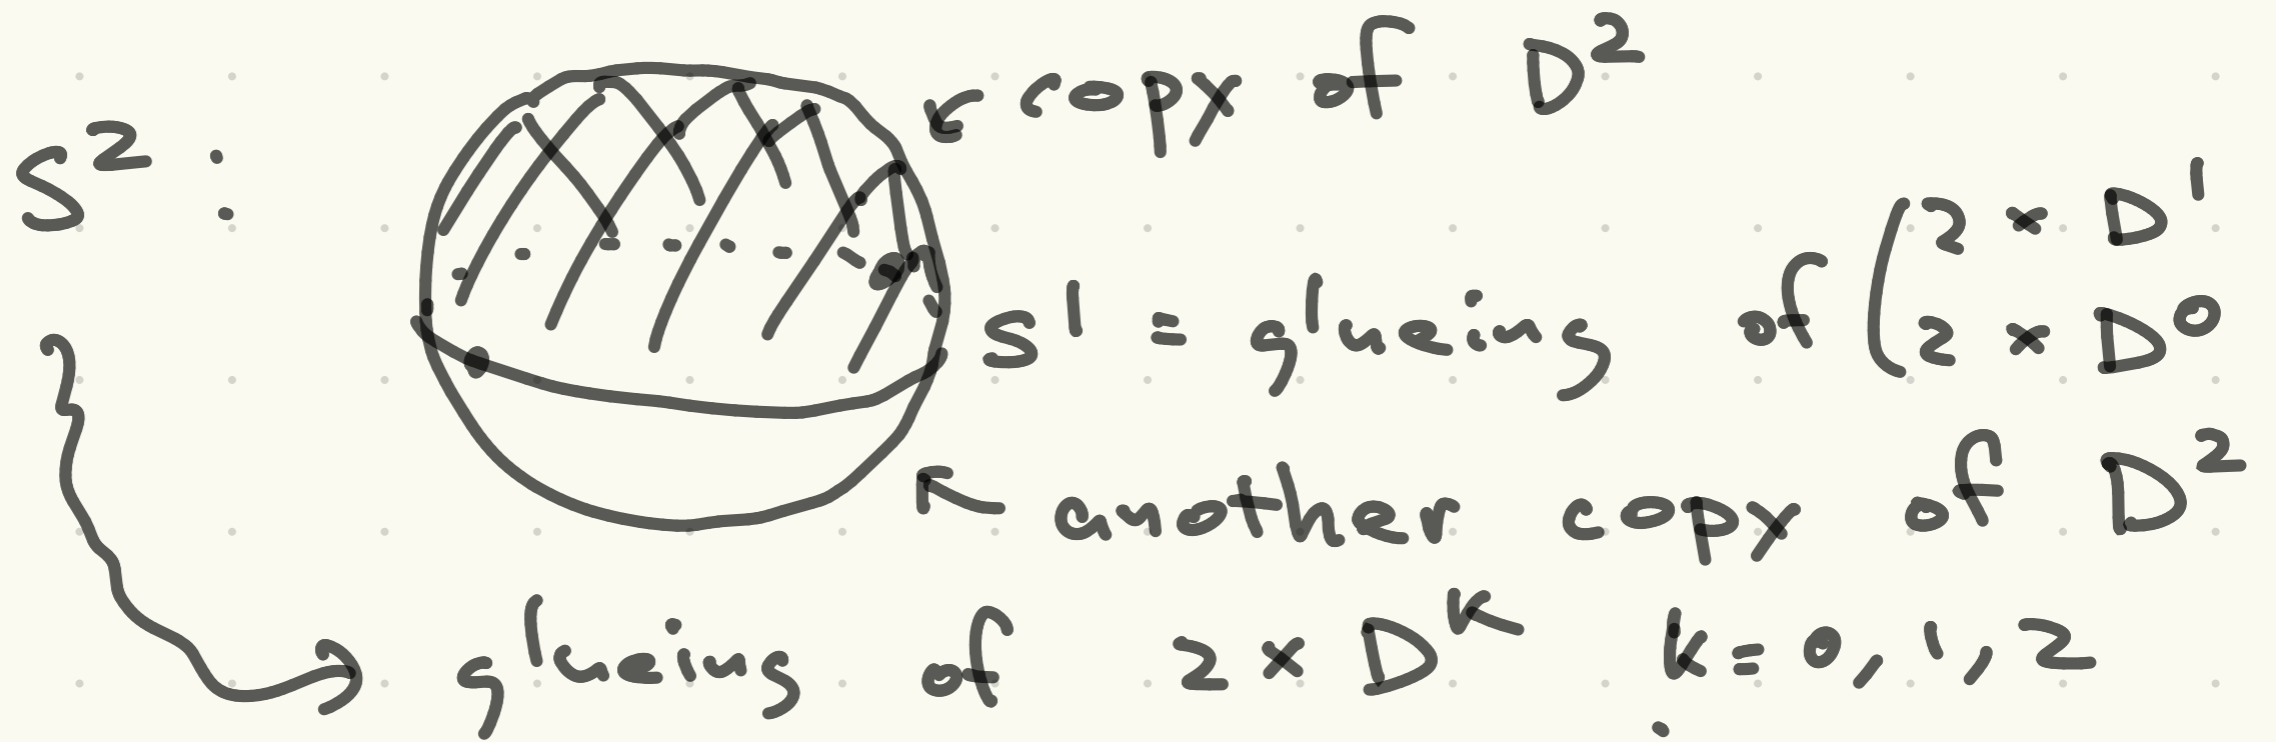 copy of D²
S² :
2 × D¹
S¹ = glueing of ( 2 × D⁰
another copy of D²
glueing of 2 × Dᵏ k = 0, 1, 2